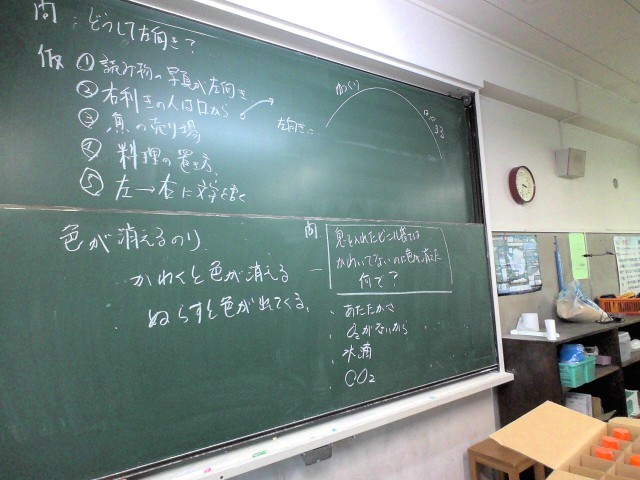 問:どうして左向き?
仮 ① 読み物の写真が左向き
② 右利きの人は口から
③ 魚の売り場
④ 料理の置き方
⑤ 左→右に文字書く
左向き
色が消えるのり
かわくと色が消える
ぬらすと色が出てくる。
問
息を入れたビニル袋では
かわいてないのに色が消えた
何で?
あたたかさ
O₂がないから
水滴
CO₂